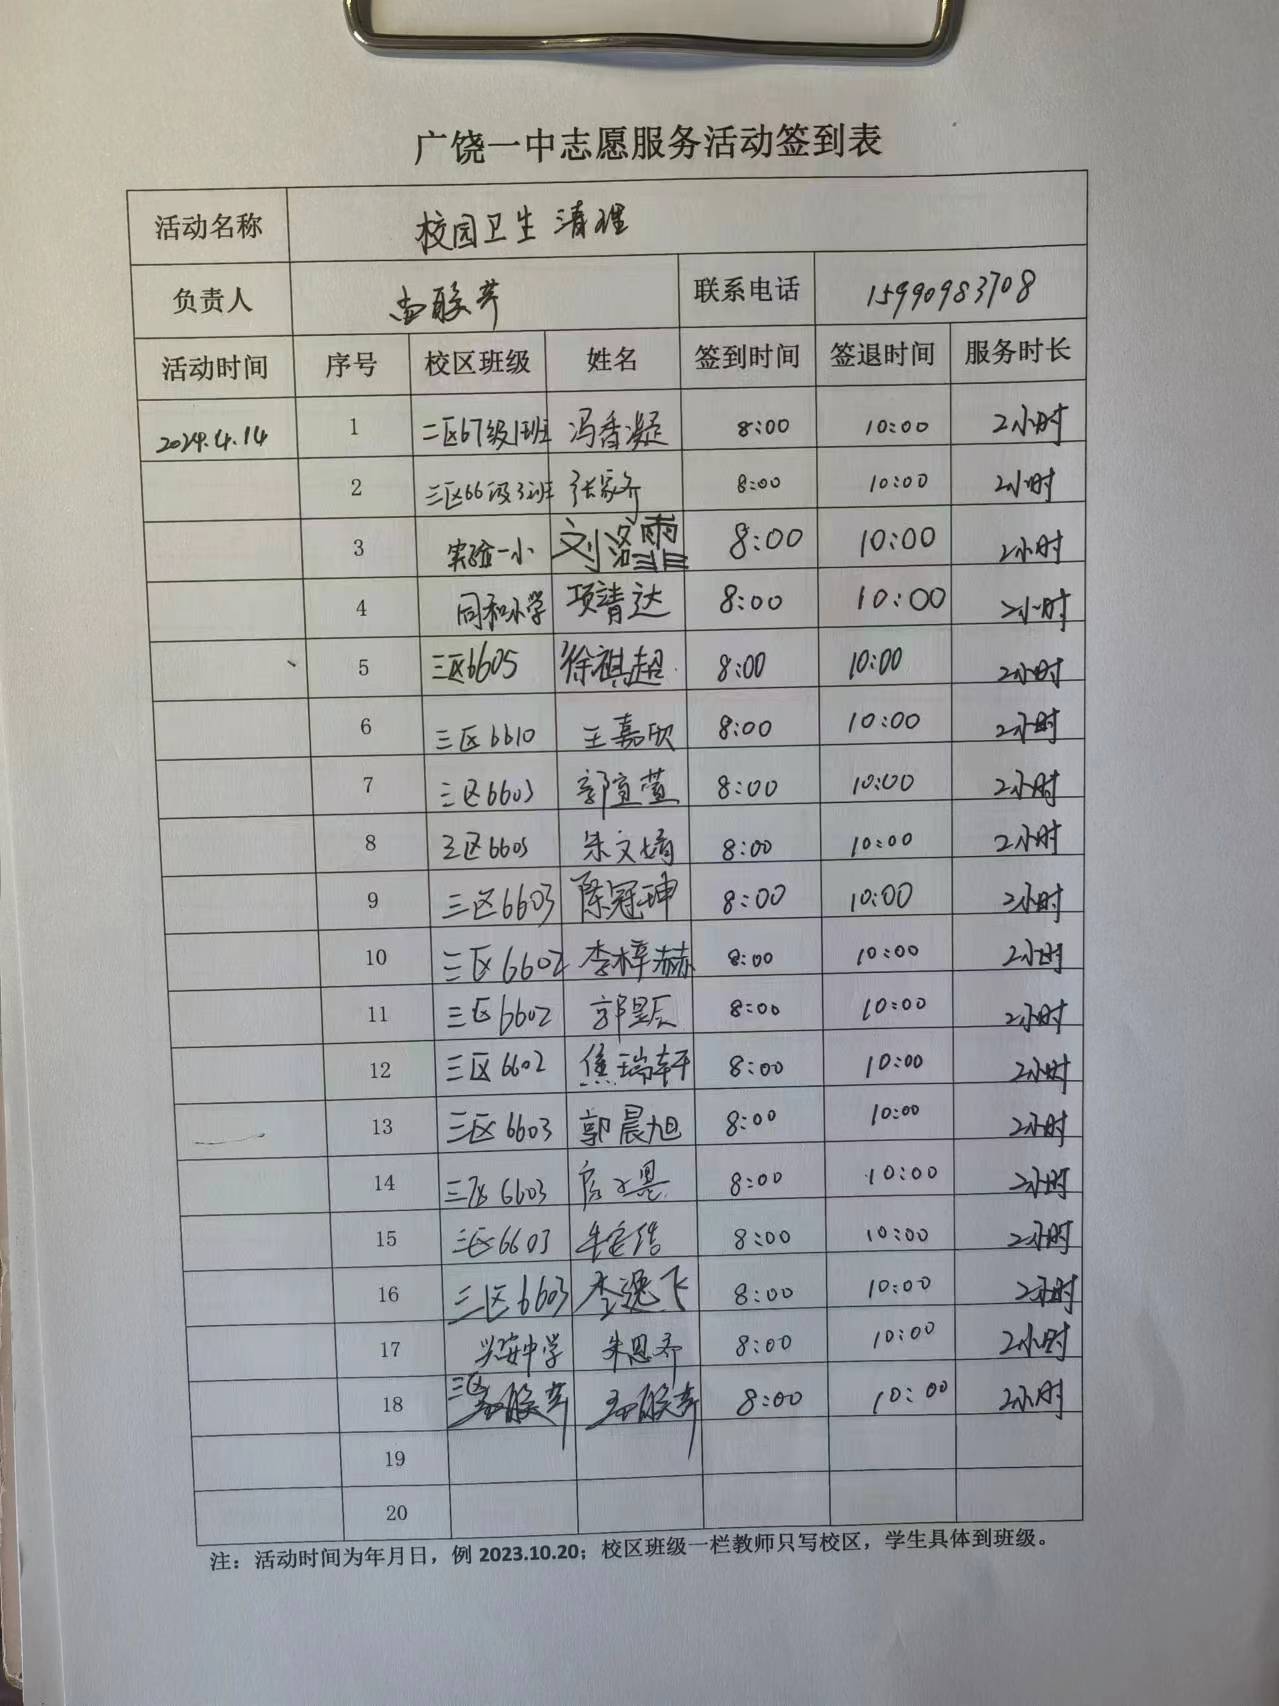 广饶一中志愿服务活动签到表
活动名称 校园卫生清理
负责人 联系电话 15990983708
活动时间 序号 校区班级 姓名 签到时间 签退时间 服务时长
2024.4.14 1 二区67级1班 冯香凝 8:00 10:00 2小时
2 三区66级3班 张家齐 8:00 10:00 2小时
3 实验一小 刘洛霏 8:00 10:00 2小时
4 同和小学 项靖达 8:00 10:00 2小时
5 三区6605 徐祺超 8:00 10:00 2小时
6 三区6610 王嘉欣 8:00 10:00 2小时
7 三区6603 郭宣萱 8:00 10:00 2小时
8 三区6605 朱文婧 8:00 10:00 2小时
9 三区6603 陈冠珅 8:00 10:00 2小时
10 三区6602 李梓赫 8:00 10:00 2小时
11 三区6602 郭昱辰 8:00 10:00 2小时
12 三区6602 焦瑞轩 8:00 10:00 2小时
13 三区6603 郭晨旭 8:00 10:00 2小时
14 三区6603 8:00 10:00 2小时
15 三区6603 8:00 10:00 2小时
16 三区6603 李逸飞 8:00 10:00 2小时
17 兴安中学 朱恩乔 8:00 10:00 2小时
18 三区 8:00 10:00 2小时
19
20
注：活动时间为年月日，例 2023.10.20；校区班级一栏教师只写校区，学生具体到班级。